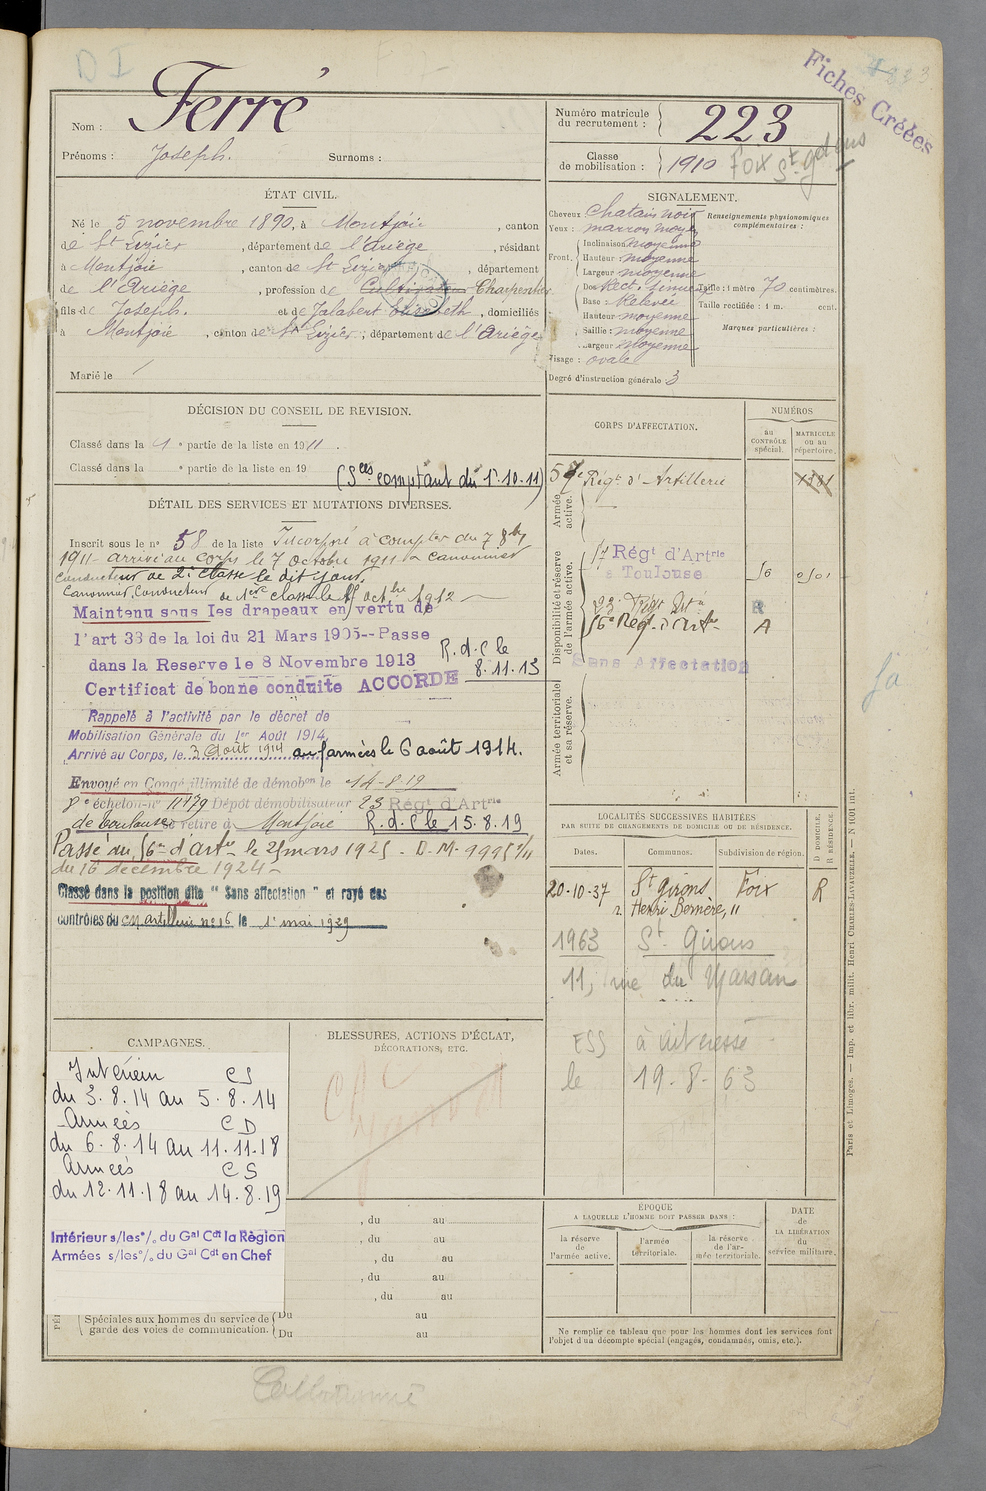 DI
Fiches Créées
Nom : Ferré
Prénoms : Joseph. Surnoms :
Numéro matricule du recrutement : 223
Classe de mobilisation : 1910 Foix St Girons
ÉTAT CIVIL.
Né le 5 novembre 1890, à Montjoie, canton
de St Lizier, département de l'Ariège, résidant
à Montjoie, canton de St Lizier, département
de l'Ariège, profession de Cultivateur Charpentier
fils de Joseph. et de Jalabert Elizabeth, domiciliés
à Montjoie, canton de St Lizier, département de l'Ariège
Marié le
SIGNALEMENT.
Cheveux : Chatain noir
Yeux : marron moyen
Front. Inclinaison moyenne
Hauteur moyenne
Largeur moyenne
Dos Rect. sinueux
Base : Relevée
Hauteur moyenne
Saillie : moyenne
Largeur moyenne
Visage : ovale
Renseignements physionomiques complémentaires :
Taille : 1 mètre 70 centimètres.
Taille rectifiée : 1 m. cent.
Marques particulières :
Degré d'instruction générale 3
DÉCISION DU CONSEIL DE REVISION.
Classé dans la 1e partie de la liste en 1911.
Classé dans la e partie de la liste en 19
(Sces comptant du 1-10-11)
DÉTAIL DES SERVICES ET MUTATIONS DIVERSES.
Inscrit sous le no 58 de la liste Incorporé à compter du 7 8bre
1911 arrivé au corps le 7 octobre 1911 canonnier
conducteur de 2e classe le dit jour.
Canonnier Conducteur de 1ere classe le octbre 1912
Maintenu sous les drapeaux en vertu de
l'art 33 de la loi du 21 Mars 1905--Passe
dans la Reserve le 8 Novembre 1913 R.d.C le 8.11.13
Certificat de bonne conduite ACCORDE
Rappelé à l'activité par le décret de
Mobilisation Générale du 1er Août 1914.
Arrivé au Corps, le 3 Août 1914 aux armées le 6 août 1914.
Envoyé en Congé illimité de démobon le 14-8-19
8e échelon no 11179 Dépôt démobilisateur 23 Régt d'Artrie
de Toulouse se retire à Montjoie R.d.C le 15.8.19
Passé du 16e d'artie le 25 mars 1925 D.M.
du 16 décembre 1924
Classé dans la position dite "Sans affectation" et rayé des
contrôles du artillerie no 16 le 1er mai 1929
CORPS D'AFFECTATION.
NUMÉROS
au CONTRÔLE spécial.
MATRICULE ou au répertoire.
Armée active.
57e Régt d'Artillerie 1981
Disponibilité et réserve de l'armée active.
57 Régt d'Artrie
à Toulouse
23e Régt
R
16e Régt d'artie A
Sans Affectation
Armée territoriale et sa réserve.
LOCALITÉS SUCCESSIVES HABITÉES
PAR SUITE DE CHANGEMENTS DE DOMICILE OU DE RÉSIDENCE.
Dates. Communes. Subdivision de région.
D DOMICILE.
R RÉSIDENCE.
20-10-37 St Girons Foix R
r. Henri Bernère, 11
1963 St Girons
11, rue du Marsan
ESS à adressé
le 19-8-63
CAMPAGNES.
Intérieur CS
du 3.8.14 au 5.8.14
Armées CD
du 6.8.14 au 11.11.18
Armées CS
du 12.11.18 au 14.8.19
Intérieur s/les o/. du Gal Cdt la Région
Armées s/les o/. du Gal Cdt en Chef
BLESSURES, ACTIONS D'ÉCLAT,
DÉCORATIONS, ETC.
, du au
, du au
, du au
, du au
, du au
Spéciales aux hommes du service de garde des voies de communication.
Du au
Du au
ÉPOQUE
A LAQUELLE L'HOMME DOIT PASSER DANS :
la réserve de l'armée active.
l'armée territoriale.
la réserve de l'armée territoriale.
DATE de LA LIBÉRATION du service militaire.
Ne remplir ce tableau que pour les hommes dont les services font
l'objet d'un décompte spécial (engagés, condamnés, omis, etc.).
Paris et Limoges. — Imp. et libr. milit. Henri CHARLES-LAVAUZELLE.